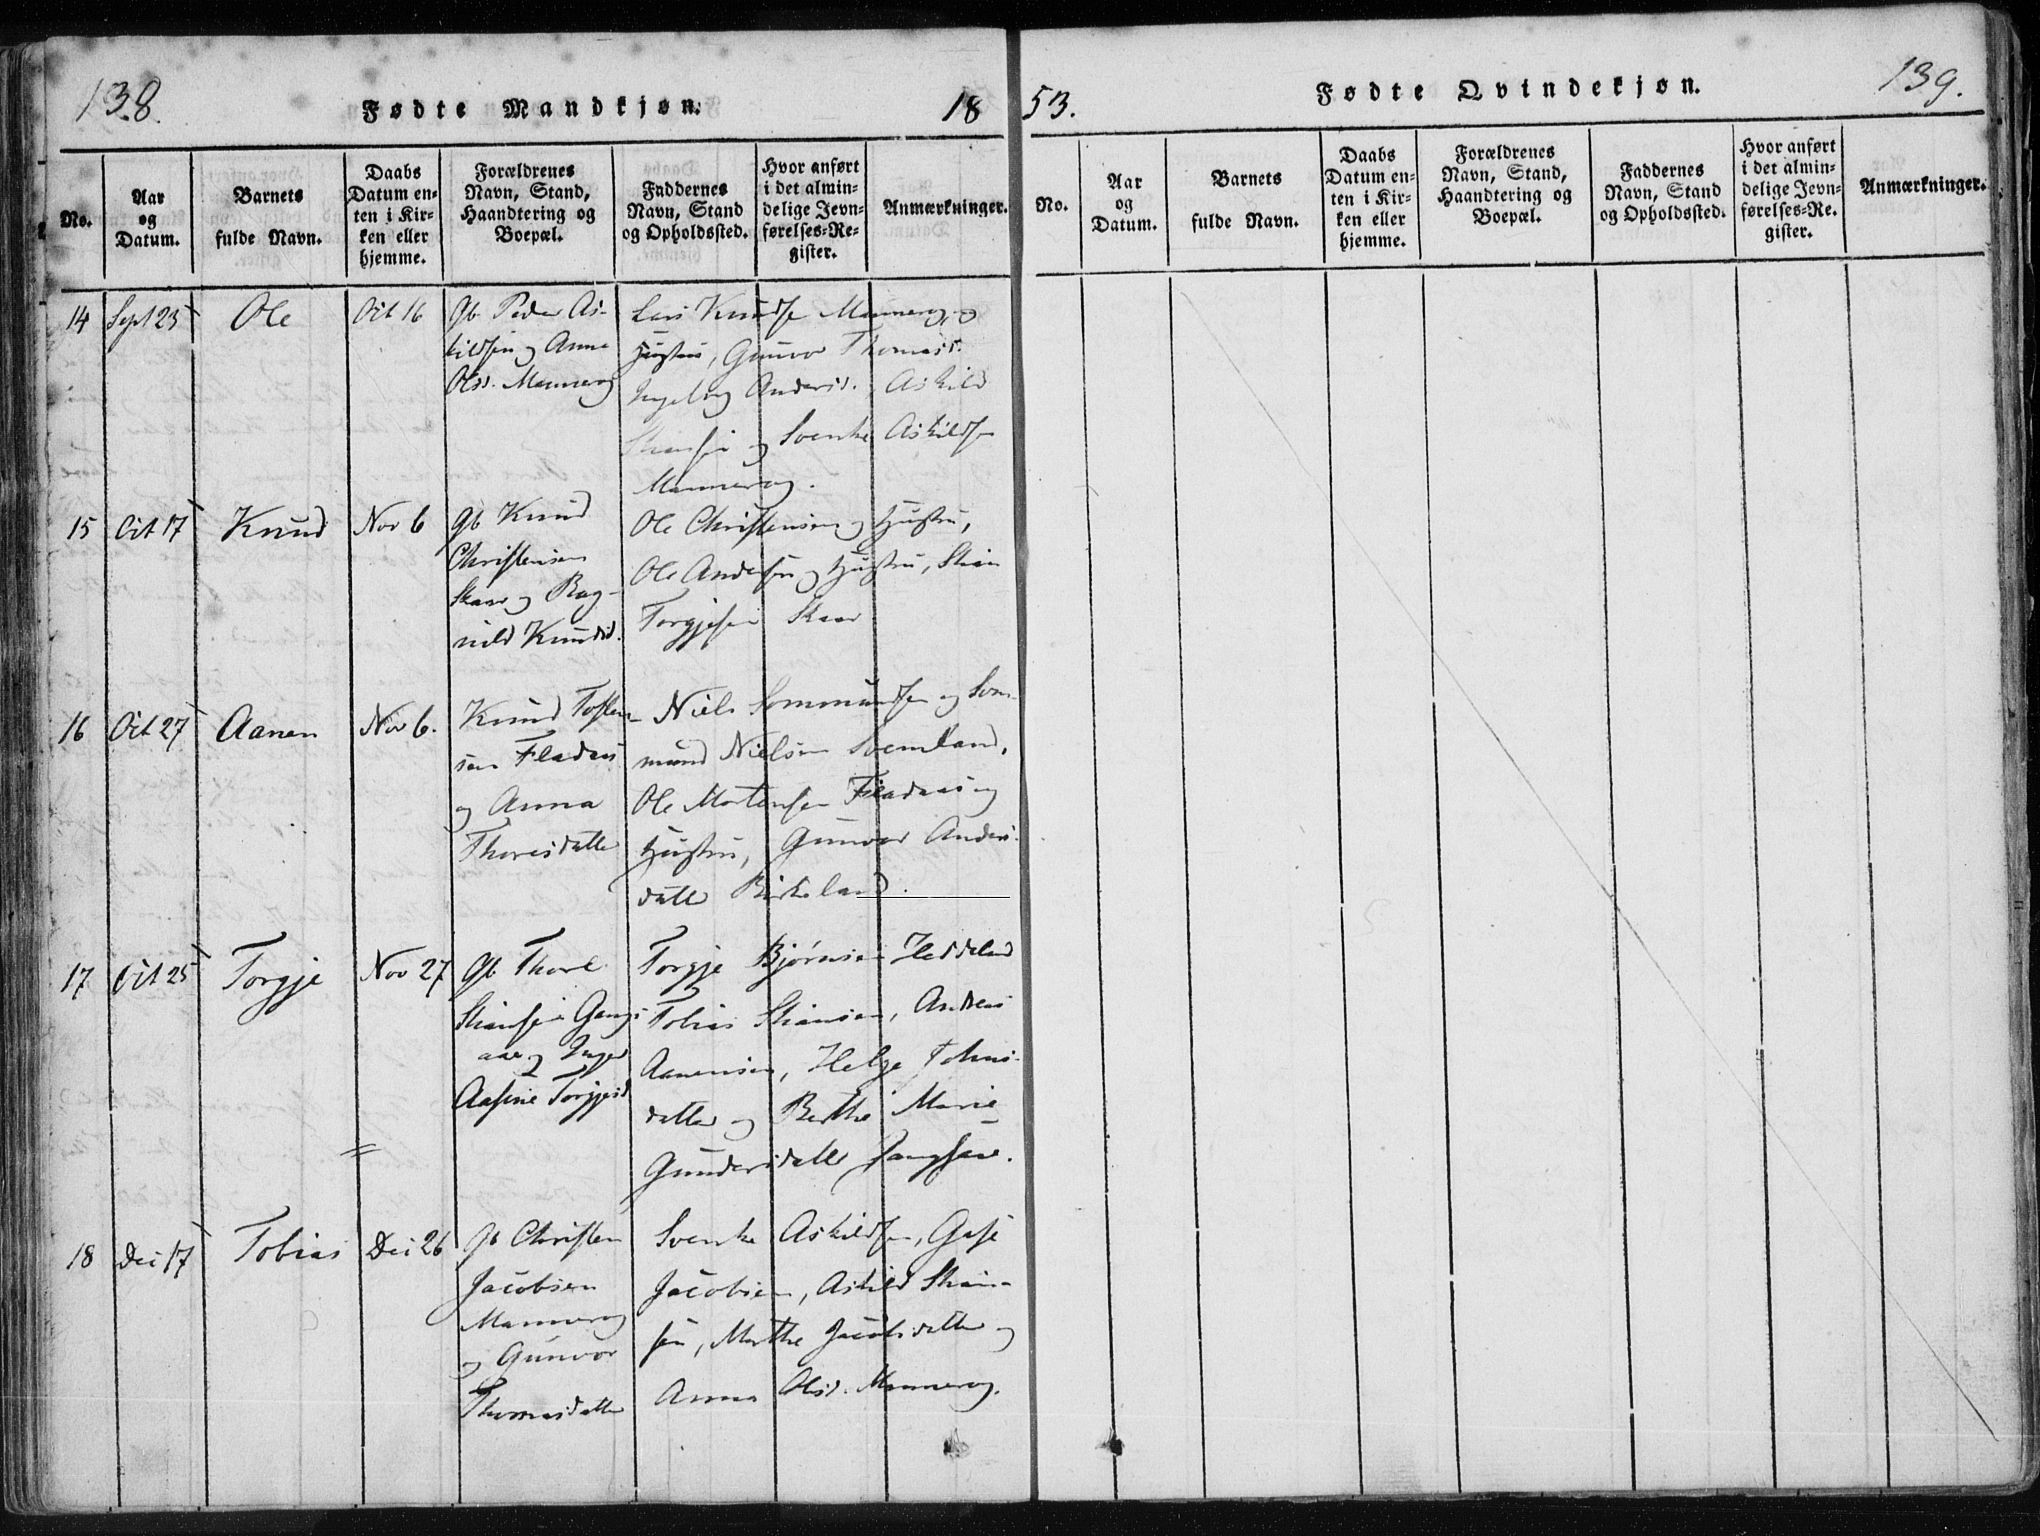 138.
Fødte Mandkjøn.
18
No.
Aar
og
Datum.
Barnets
fulde Navn.
Daabs
Datum en-
ten i Kir-
ken eller
hjemme.
Forældrenes
Navn, Stand,
Haandtering og
Boepæl.
Faddernes
Navn, Stand
og Opholdssted.
Hvor anført
i det almin-
delige Jevn-
førelses-Re-
gister.
Anmærkninger.
14
Sept 23
Ole
Oct 16
Gb Peder As-
kildsen og Anne
Olsd. Mannerog
Lars Knudsen Mannerog, og
Hustru, Gunvor Thomasd.
Ingeborg Andersd. Askild
Stiansen og Svenke Askildsen
Mannerog.
15
Oct 17
Knud
Nov 6
Gb Knud
Christensen
Skaar og Rag-
nild Knudsd.
Ole Christensen og Hustru,
Ole Andersen og Hustru, Stian
Torgjesen Skaar
16
Oct 27
Aanen
Nov 6.
Knud Tosten-
sen Fladaas
og Anna
Thoresdatter
Niels Sommundsen og Som-
mund Nielsen Svemland,
Ole Mortensen Fladaas og
Hustru, Gunvor Anders-
datter Birkeland.
17
Oct 25
Torgje
Nov 27
Gb Thore
Stiansen Gangs-
aae og Inger
Aasine Torgjesd
Torgje Bjørnsen Heddeland
Tobias Stiansen, Andreas
Aanensen, Helge Johns-
datter og Berthe Marie
Gundersdatter Gangsaae.
18
Dec 17
Tobias
Dec 26
Gb Christen
Jacobsen
Mannerog
og Gunvor
Thomasdatter
Svenke Askildsen,
Jacobsen, Askild Stian-
sen, Marthe Jacobsdatter og
Anna Olsd. Mannerog.
53.
Fødte Qvindekjøn.
139.
No.
Aar
og
Datum.
Barnets
fulde Navn.
Daabs
Datum en-
ten i Kir-
ken eller
hjemme.
Forældrenes
Navn, Stand,
Haandtering og
Boepæl.
Faddernes
Navn, Stand
og Opholdssted.
Hvor anført
i det almin-
delige Jevn-
førelses-Re-
gister.
Anmærkninger.